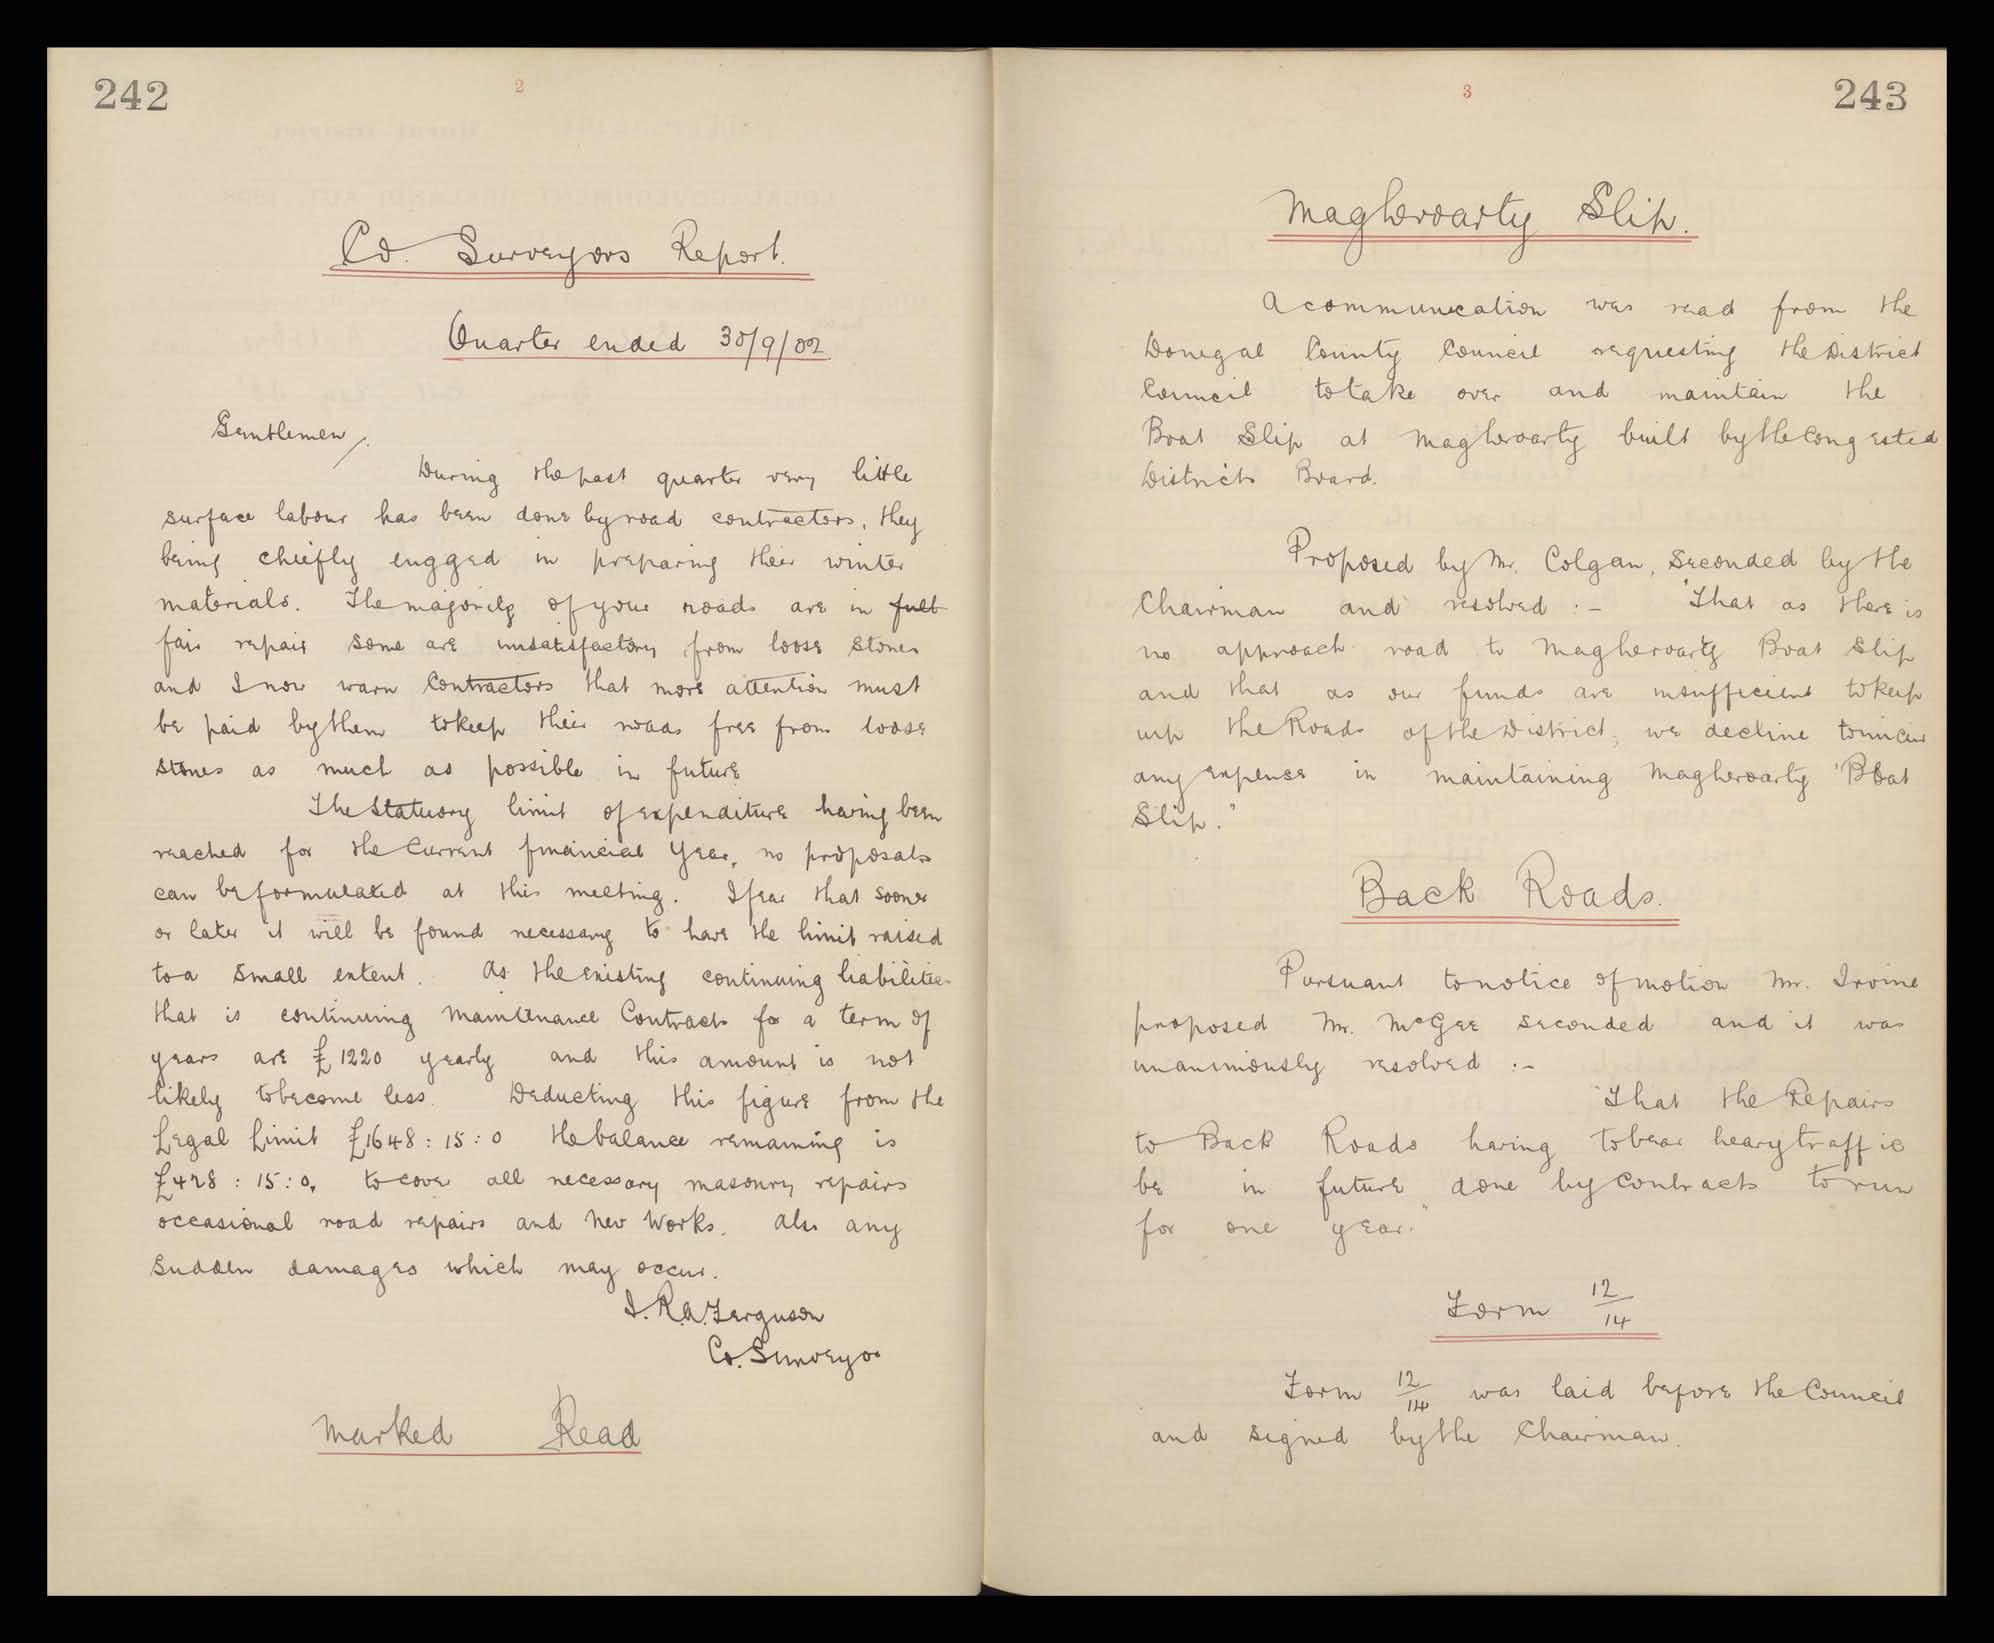 242
2
Co. Surveyors Report.
Quarter ended 30/9/02
Gentlemen/.
During the past quarter very little
surface labour has been done by road contractors, they
being chiefly engged in preparing their winter
materials. The majority of your roads are in full
fair repair some are unsatisfactory from loose stones
and I now warn Contractors that more attention must
be paid by them to keep their roads free from loose
stones as much as possible in future
The Statuory limit of expenditure having been
reached for the Current financial Year, no proposals
can be formulated at this meeting. I fear that sooner
or later it will be found necessary to have the limit raised
to a small extent. As the existing continuing liabilities
that is continuing Maintenance Contracts for a term of
years are £1220 yearly and this amount is not
likely to become less. Deducting this figure from the
Legal Limit £1648:15:0 the balance remaining is
£428:15:0, to cover all necessary masonry repairs
occasional road repairs and New Works. Also any
sudden damages which may occur.
I. R.A. Ferguson
Co. Surveyor
Marked Read
3
243
Magheroarty Slip.
A communication was read from the
Donegal County Council requesting the District
Council to take over and maintain the
Boat Slip at Magheroarty built by the Congested
Districts Board.
Proposed by Mr. Colgan, Seconded by the
Chairman and resolved :- "That as there is
no approach road to Magheroarty Boat Slip
and that as our funds are insufficient to keep
up the Roads of the District, we decline to incur
any expense in maintaining Magheroarty Boat
Slip."
Back Roads.
Pursuant to notice of motion Mr. Irvine
proposed Mr. McGee seconded and it was
unanimously resolved :-
"That the Repairs
to Back Roads having to bear heavy traffic
be in future done by contracts to run
for one year."
Form 12/14
Form 12/14 was laid before the Council
and signed by the Chairman.